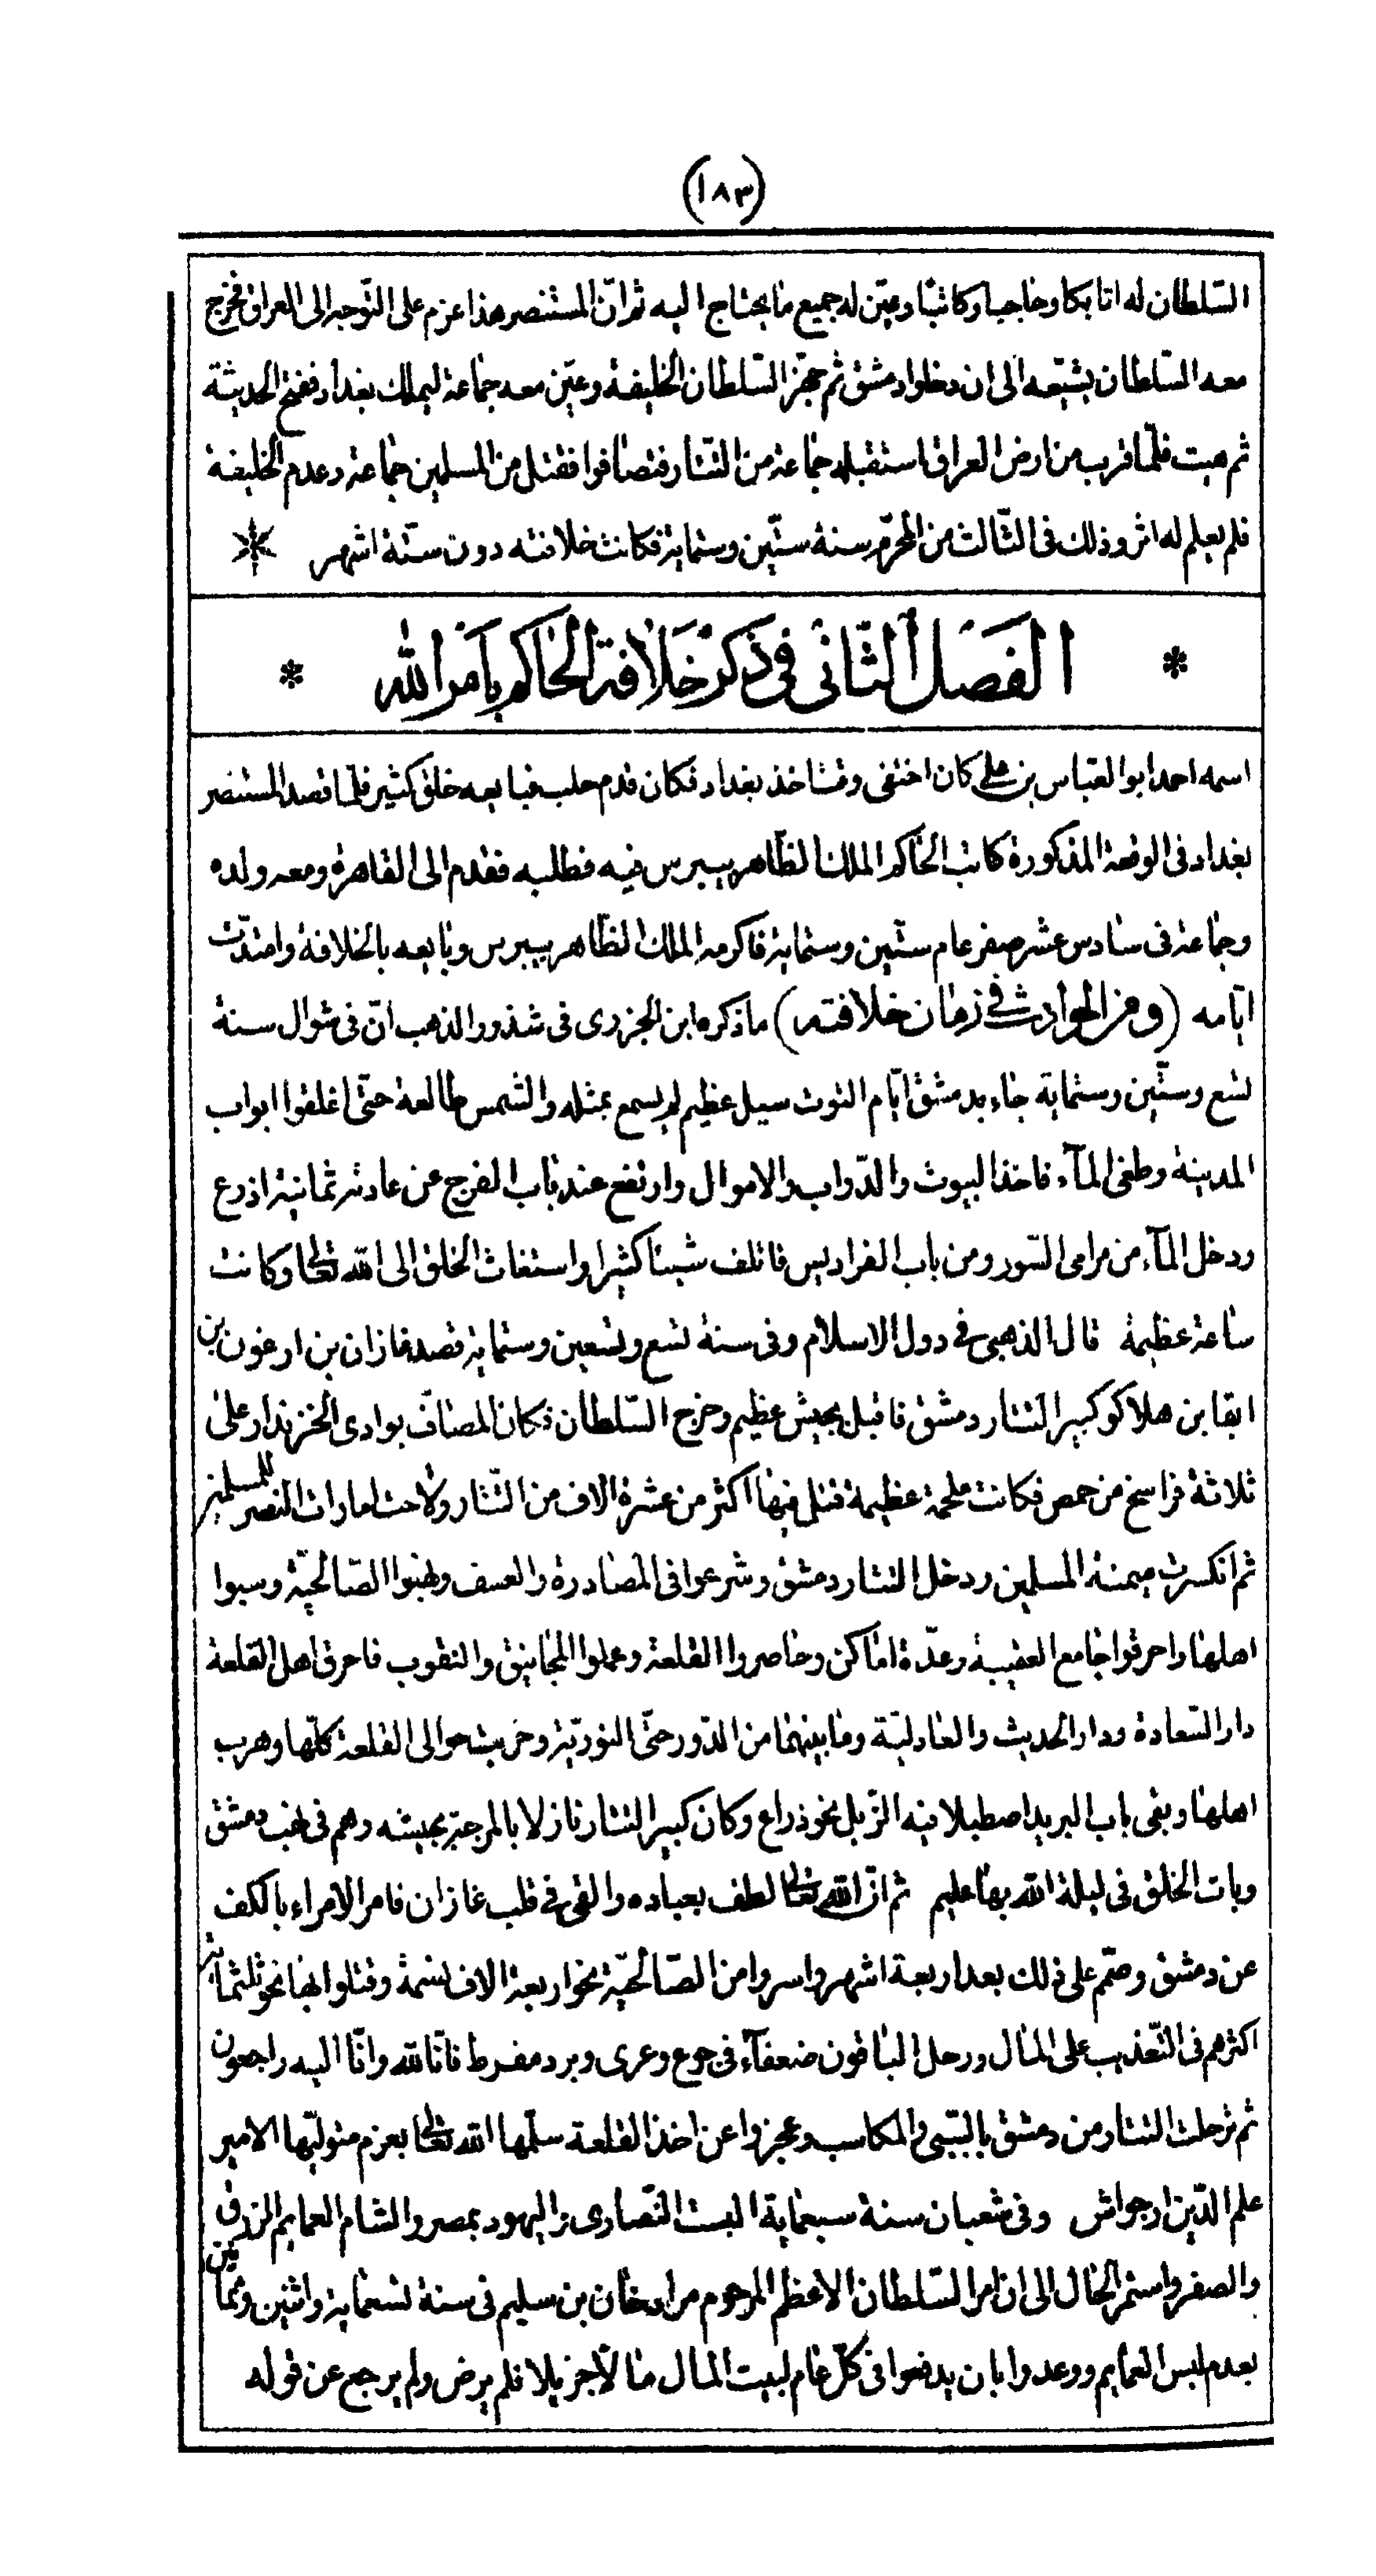 (١٨٣)
السّلطان له اتابكا وحاجبا وكاتبا وعيّن له جميع ما يحتاج اليه ثم انّ المستنصر هذا عزم على التّوجه الى العراق فخرج
معه السّلطان يشيّعه الى ان دخلوا دمشق ثم جهّز السّلطان الخليفة وعيّن معه جماعة ليملك بغداد ففتح الحديثة
ثم هيت فلمّا قرب من ارض العراق استقبله جماعة من التّتار فتصافوا فقتل من المسلمين جماعة وعدم الخليفة
فلم يعلم له اثر وذلك فى الثّالث من المحرّم سنة ستّين وستماية فكانت خلافته دون ستّة اشهر
الفصل الثّانى فى ذكر خلافة الحاكم بامر الله
اسمه احمد ابو العباس بن على كان اختفى وقت اخذ بغداد فكان قدم حلب فبايعه خلق كثير فلمّا قصد المستنصر
بغداد فى الوقعة المذكورة كاتب الحاكم الملك الظّاهر بيبرس فيه فطلبه فقدم الى القاهرة ومعه ولده
وجماعة فى سادس عشر صفر عام ستّين وستماية فاكرمه الملك الظّاهر بيبرس وبايعه بالخلافة وامتدّت
ايّامه (ومن الحوادث فى زمان خلافته) ما ذكره ابن الجزرى فى شذور الذهب انّ فى شوال سنة
تسع وستّين وستماية جاء بدمشق ايّام التوت سيل عظيم لم يسمع بمثله والشمس طالعة حتّى اغلقوا ابواب
المدينة وطغى المآء فاخذ البيوت والدّواب والاموال وارتفع عند باب الفرج عن عادته ثمانية اذرع
ودخل المآء من مرامى السّور ومن باب الفراديس فاتلف شيئا كثيرا واستغاث الخلق الى الله تعالى وكانت
ساعة عظيمة قال الذهبى فى دول الاسلام وفى سنة تسع وتسعين وستماية قصد غازان بن ارغون بن
ابقا بن هلاكو كبير التتار دمشق فاقبل بجيش عظيم وخرج السّلطان فكان المصافّ بوادى الخزندار على
ثلاثة فراسخ من حمص فكانت ملحمة عظيمة قتل فيها اكثر من عشرة الاف من التّتار ولاحت امارات النصر للمسلمين
ثم انكسرت ميمنة المسلمين ودخل التتار دمشق وشرعوا فى المصادرة والعسف ونهبوا الصّالحيّة وسبوا
اهلها واحرقوا جامع العقيبة وعدّة اماكن وحاصروا القلعة وعملوا المجانيق والنقوب فاحرق اهل القلعة
دار السّعادة ودار الحديث والعادليّة وما بينهما من الدّور حتّى النوريّة وخربت حوالى القلعة كلّها وهرب
اهلها وبقى باب البريد اصطبلا فيه الزّبل نحو ذراع وكان كبير التتار نازلا بالمرجة بجيشه وهم فى نهب دمشق
وبات الخلق فى ليلة الله بها عليم ثم انّ الله تعالى لطف بعباده والقى فى قلب غازان فامر الامراء بالكف
عن دمشق وصمّم على ذلك بعد اربعة اشهر واسروا من الصّالحيّة نحو اربعة الاف نسمة وقتلوا بها نحو ثلثماية
اكثرهم فى التّعذيب على المال ورحل الباقون ضعفآء فى جوع وعرى وبرد مفرط فانّا لله وانّا اليه راجعون
ثم ترحلت التتار من دمشق بالسّبى والمكاسب وعجزوا عن اخذ القلعة سلّمها الله تعالى بعزم متوليّها الامير
علم الدّين ارجواش وفى شعبان سنة سبعماية البست النّصارى واليهود بمصر والشام العمايم الزرق
والصفر واستمر الحال الى ان امر السّلطان الاعظم المرحوم مراد خان بن سليم فى سنة تسعماية واثنين وثمانين
بعدم لبس العمايم ووعدوا بان يدفعوا فى كلّ عام لبيت المال مالا جزيلا فلم يرض ولم يرجع عن قوله